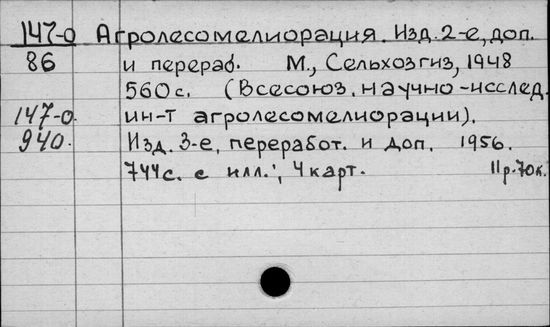 147-о Агролесомелиорация. Изд. 2-е, доп.
86 и перераб. М., Сельхозгиз, 1948
560 с. (Всесоюз. научно-исслед.
147-о. ин-т агролесомелиорации).
940. Изд. 3-е, переработ. и доп. 1956.
744 с. с илл.; 4 карт. 11р.70к.